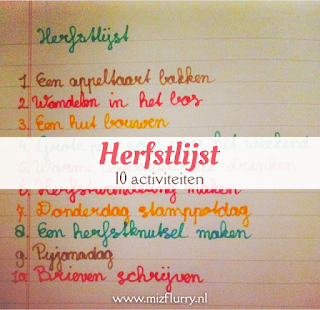 Herfstlijst
1. Een appeltaart bakken
2. Wandelen in het bos
3. Een hut bouwen
4. Grote het weekend
5. Warme drinken
Herfstlijst
10 activiteiten
6. maken
7. Donderdag stamppotdag
8. Een herfstknutsel maken
9. Pyjamadag
10. Brieven schrijven
www.mizflurry.nl